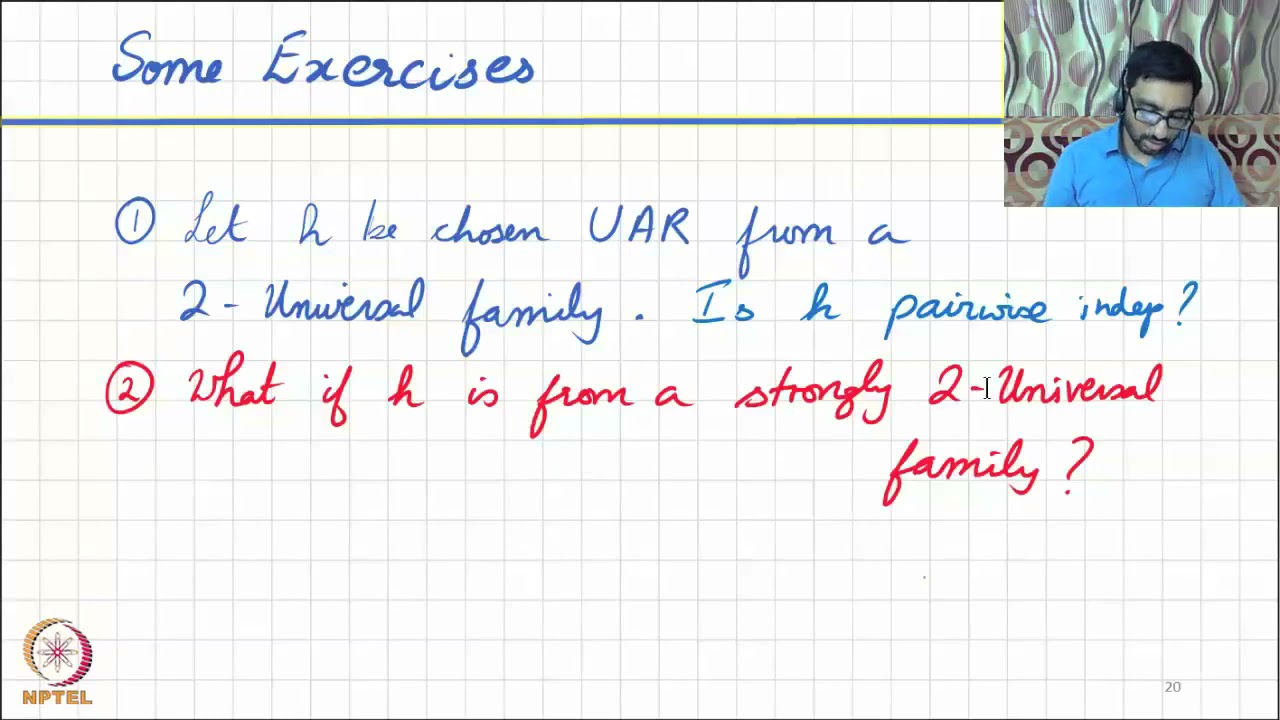 Some Exercises
① Let h be chosen UAR from a
2-Universal family. Is h pairwise indep?
② What if h is from a strongly 2-Universal
family?
NPTEL
20